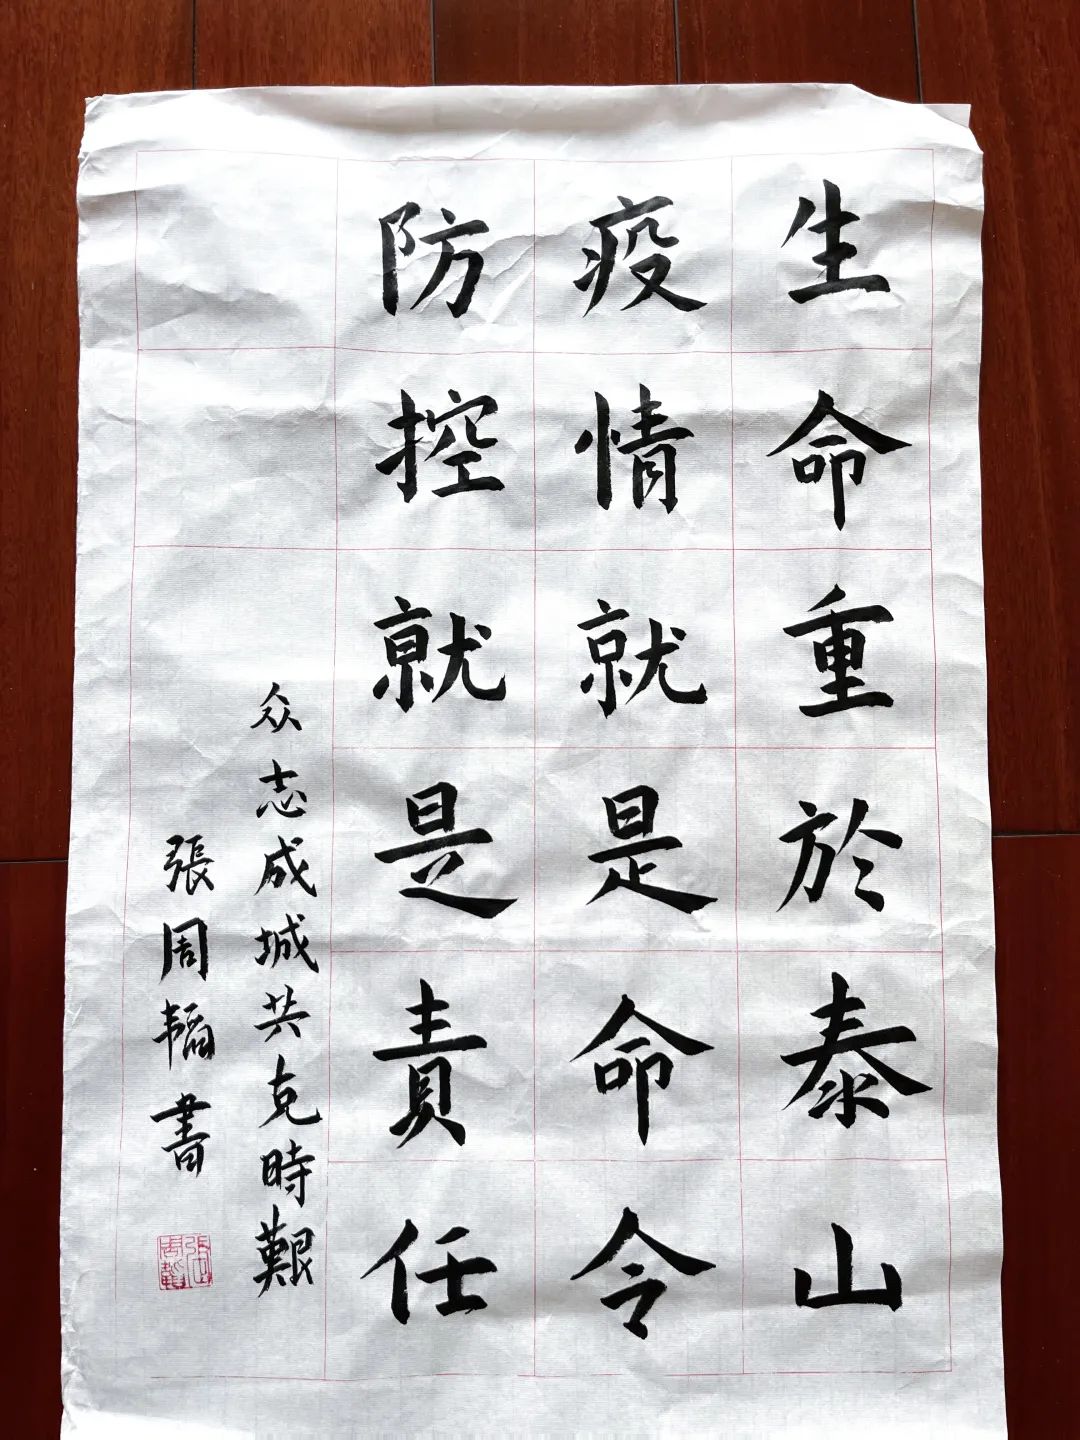 生命重於泰山
疫情就是命令
防控就是責任
众志成城共克時艱
張周韬書